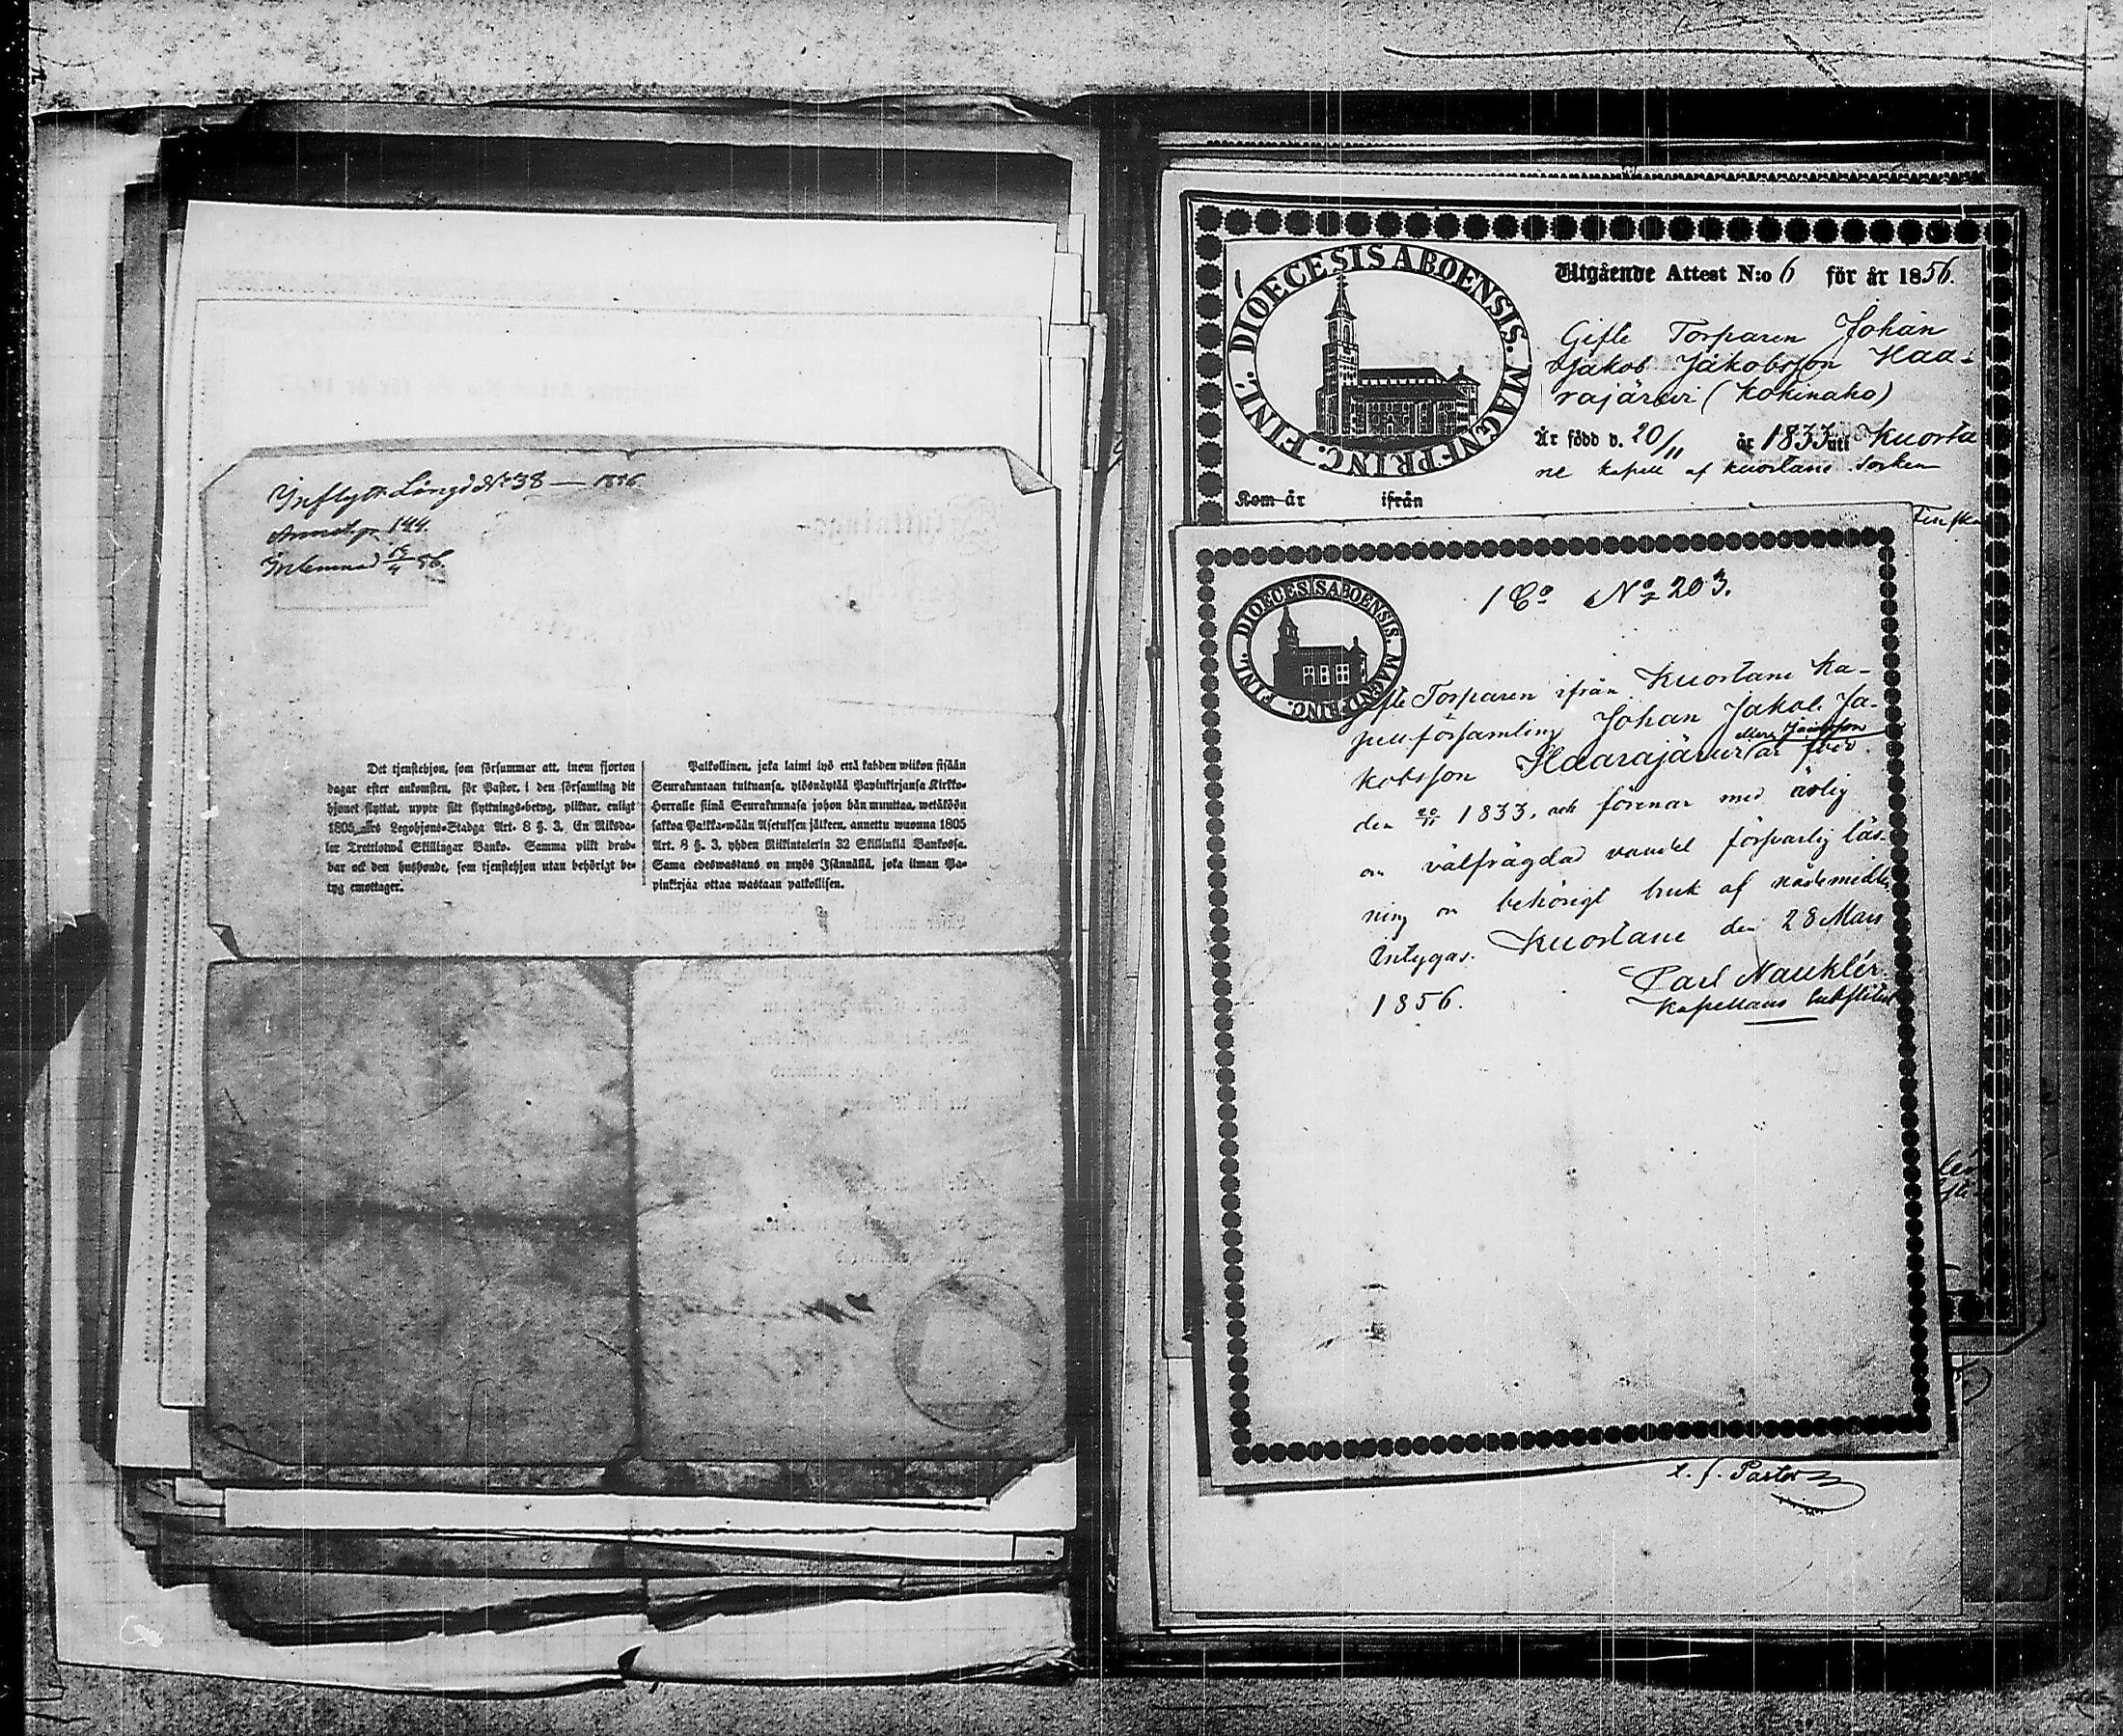 Inflyttn Längd No 38 — 1856
Annot. p. 144.
Inlemnad 19/4 56.
Det tjenstehjon, som försummar att, inom fjorton
dagar efter ankomsten, för Pastor, i den församling dit
hjonet flyttat, uppte sitt flyttnings-betyg, pliktar, enligt
1805 års Legohjons-Stadga Art. 8 §. 3, En Riksda-
ler Trettiotwå Skillingar Banko. Samma plikt drab-
bar ock den husbonde, som tjenstehjon utan behörigt be-
tyg emottager.
Palkollinen, joka laimi lyö että kahden wiikon sisään
Seurakuntaan tultuansa, ylösnäytää Papinkirjansa Kirkko-
Herralle siinä Seurakunnasa johon hän muuttaa, wetäköön
sakkoa Palkka-wään Asetuksen jälkeen, annettu wuonna 1805
Art. 8 §. 3, yhden Riikintalerin 32 Skillinkiä Bankossa.
Sama edeswastaus on myös Isännällä, joka ilman Pa-
pinkirjaa ottaa wastaan palkollisen.
DIOECESIS ABOENSIS. MAGNI PRINC. FINL.
Utgående Attest N:o 6 för år 1856.
Gifte Torparen Johan
Jakob Jakobsson Haa-
rajärwi (Kokinaho)
Är född d. 20/11 år 1833 uti Kuorta
ne kapell af Kuortane Socken
Kom år ifrån
Finska
DIOECESIS ABOENSIS. MAGNI PRINC. FINL.
1 Co No 203.
Gifte Torparen ifrån Kuortane Ka-
pellförsamling Johan Jakob Ja-
kobsson Haarajärwi är född
den 20/11 1833, och förenar med ärlig
och välfrägdad vandel försvarlig läs-
ning och behörigt bruk af nådemedlen
Intygas. Kuortane den 28 Mars
1856. Carl Nauklér.
Kapellans Substitut
v. f. Pastor